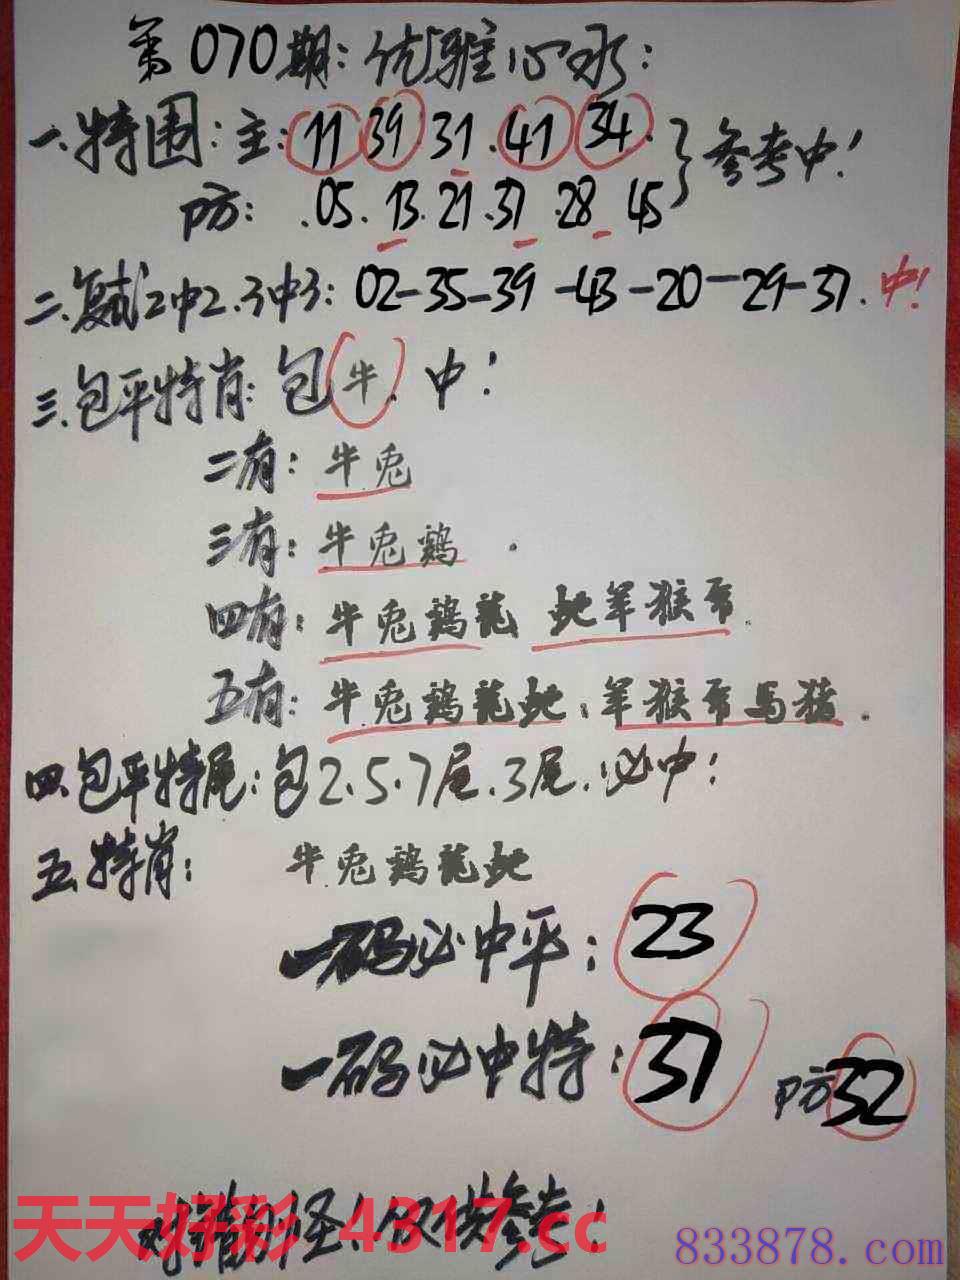 第070期：优雅心水：
一.特围：主：11 39 31.41 34.
防：.05.13.21.37.28 45
参考中！
二.复试2中2.3中3：02-35-39-43-20-29-37.中！
三.包平特肖：包牛.中！
二有：牛兔
三有：牛兔鷄.
四有：牛兔鷄龍 蛇羊猴
五有：牛兔鷄龍蛇：羊猴 馬猪.
四.包平特尾：包2.5.7尾.3尾.必中！
五.特肖：牛兔鷄龍蛇
一码必中平：23
一码必中特：37 防32
对错勿怪！仅供参考！
天天好彩 4317.cc
833878.com